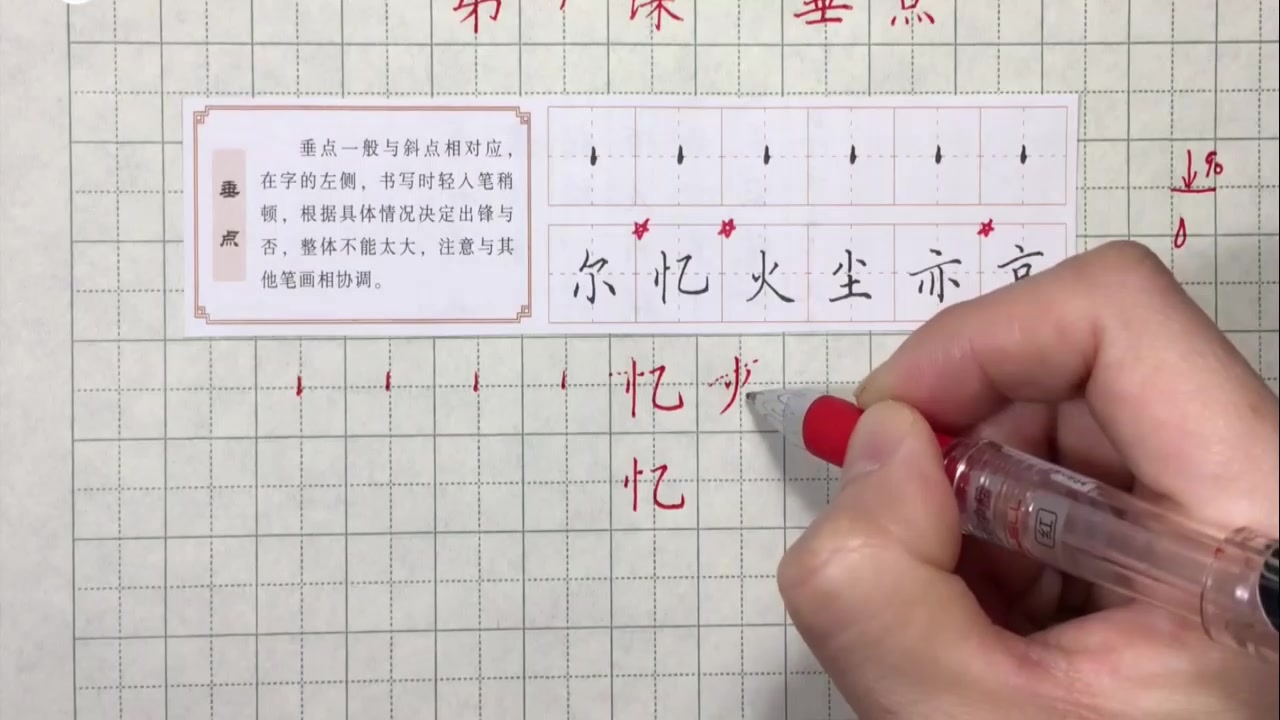 垂点
垂点
垂点一般与斜点相对应，
在字的左侧，书写时轻人笔稍
顿，根据具体情况决定出锋与
否，整体不能太大，注意与其
他笔画相协调。
尔忆火尘亦京
忆
忆
红